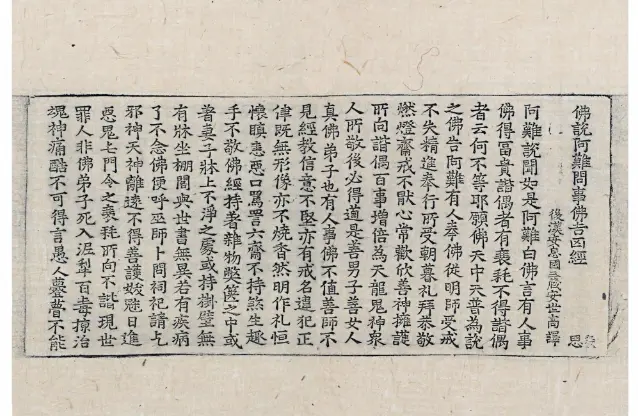 佛說阿難問事佛吉凶經
後漢安息國三藏安世高譯 恩
阿難說聞如是阿難白佛言有人事
佛得富貴諧偶者有衰耗不得諧偶
者云何不等耶願佛天中天普為說
之佛告阿難有人奉佛從明師受戒
不失精進奉行所受朝暮礼拜恭敬
燃燈齋戒不猒心常歡欣善神擁護
所向諧偶百事增倍為天龍鬼神衆
人所敬後必得道是善男子善女人
真佛弟子也有人事佛不值善師不
見經教信意不堅亦有戒名違犯正
律既無形像亦不燒香然明作礼恒
懷瞋恚惡口罵詈六齋不持煞生趣
手不敬佛經持著雜物弊篋之中或
著妻子牀上不淨之處或持掛壁無
有牀坐棚閣與世書無異若有疾病
了不念佛便呼巫師卜問祠祀請乞
邪神天神離遠不得善護妖魅日進
惡鬼屯門令之衰耗所向不諧現世
罪人非佛弟子死入泥犁百毒掠治
魂神痛酷不可得言愚人瞢瞢不能